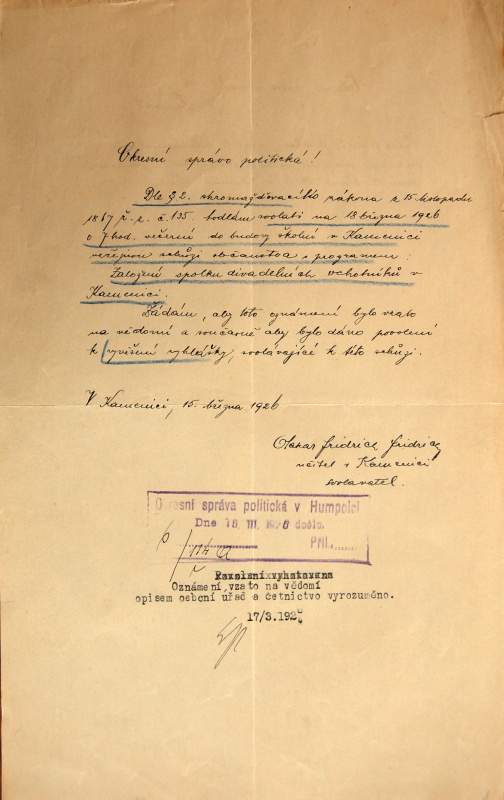 Okresní správo politická!
Dle § 2. shromažďovacího zákona z 15. listopadu
1867 ř. z. č. 135. hodlám svolati na 18 března 1926
o 7 hod. večerní do budovy školní v Kamenici
veřejnou schůzi občanstva s programem:
Založení spolku divadelních ochotníků v
Kamenici.
Žádám, aby toto oznámení bylo vzato
na vědomí a současně aby bylo dáno povolení
k vyvěšení vyhlášky, svolávající k této schůzi.
V Kamenici, 15. března 1926
Otakar Fridrich Fridrich
učitel v Kamenici
svolavatel.
Okresní správa politická v Humpolci
Dne 16. III. 1926 došlo.
Příl.
Oznámení vzato na vědomí
opisem osbcní uřad a četnictvo vyrozuměno.
17/3.1926